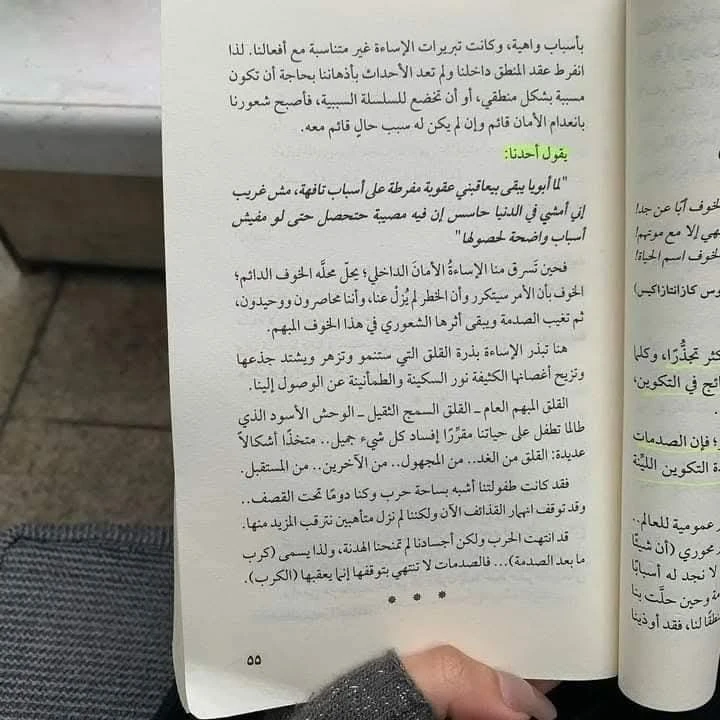 بأسباب واهية، وكانت تبريرات الإساءة غير متناسبة مع أفعالنا. لذا
انفرط عقد المنطق داخلنا ولم تعد الأحداث بأذهاننا بحاجة أن تكون
مسببة بشكل منطقي، أو أن تخضع للسلسلة السببية، فأصبح شعورنا
بانعدام الأمان قائم وإن لم يكن له سبب حالٍ قائم معه.
يقول أحدنا:
"لما أبويا يبقى بيعاقبني عقوبة مفرطة على أسباب تافهة، مش غريب
إني أمشي في الدنيا حاسس إن فيه مصيبة حتحصل حتى لو مفيش
أسباب واضحة لحصولها"
فحين تَسرق منا الإساءةُ الأمانَ الداخلي؛ يحلّ محلَّه الخوف الدائم؛
الخوف بأن الأمر سيتكرر وأن الخطر لم يُزلْ عنا، وأننا محاصرون ووحيدون،
ثم تغيب الصدمة ويبقى أثرها الشعوري في هذا الخوف المبهم.
هنا تبذر الإساءة بذرة القلق التي ستنمو وتزهر ويشتد جذعها
وتزيح أغصانها الكثيفة نور السكينة والطمأنينة عن الوصول إلينا.
القلق المبهم العام ـ القلق السمج الثقيل ـ الوحش الأسود الذي
طالما تطفل على حياتنا مقرِّرًا إفساد كل شيء جميل.. متخذًا أشكالاً
عديدة: القلق من الغد.. من المجهول.. من الآخرين.. من المستقبل.
فقد كانت طفولتنا أشبه بساحة حرب وكنا دومًا تحت القصف..
وقد توقف انهمار القذائف الآن ولكننا لم نزل متأهبين نترقب المزيد منها.
قد انتهت الحرب ولكن أجسادنا لم تمنحنا الهدنة، ولذا يسمى (كرب
ما بعد الصدمة)... فالصدمات لا تنتهي بتوقفها إنما يعقبها (الكرب).
* * *
٥٥
الخوف أبًا عن جد!
إلا مع موتهم!
الخوف اسم الحياة!
كازانتزاكيس)
تجذُّرًا، وكلما
في التكوين،
؛ فإن الصدمات
التكوين الليِّنة
عمومية للعالم..
محوري (أن شيئًا
لا نجد له أسبابًا
وحين حلَّت بنا
لنا، فقد أوذينا